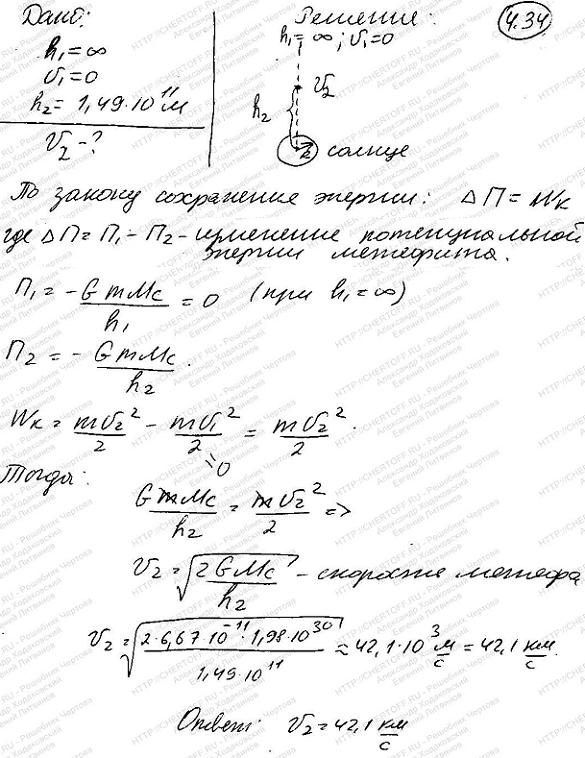 Дано: Решение: 4.34
h₁ = ∞ h₁ = ∞; υ₁ = 0
υ₁ = 0
h₂ = 1,49·10¹¹ м h₂ υ₂
υ₂ - ? солнце
По закону сохранение энергии: ΔП = Wк
где ΔП = П₁ - П₂ - изменение потенциальной
энергии метеорита.
П₁ = - GmMc/h₁ = 0 (при h₁ = ∞)
П₂ = - GmMc/h₂.
Wк = mυ₂²/2 - mυ₁²/2 = mυ₂²/2.
= 0
Тогда:
GmMc/h₂ = mυ₂²/2 =>
υ₂ = √(2GMc/h₂) - скорость
υ₂ = √(2·6,67·10⁻¹¹·1,98·10³⁰/1,49·10¹¹) ≈ 42,1·10³ м/с = 42,1 км/с.
Ответ: υ₂ = 42,1 км/с
HTTP://CHERTOFF.RU - Решебник Чертова
Александр Ходаковский
Евгений Литвинов